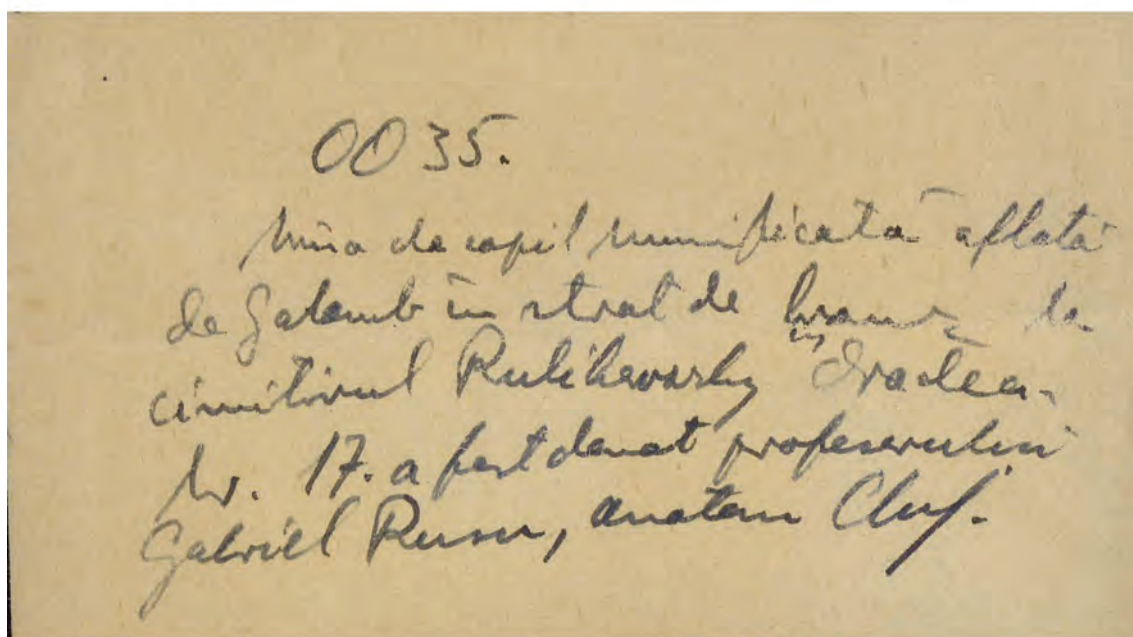 0035.
Mîna de copil mumificată aflată
de Galamb în strat de bronz la
cimitirul Rulikovszky din Oradea.
Nr. 17. a fost donat profesorului
Gabriel Rusu, anatom Cluj.